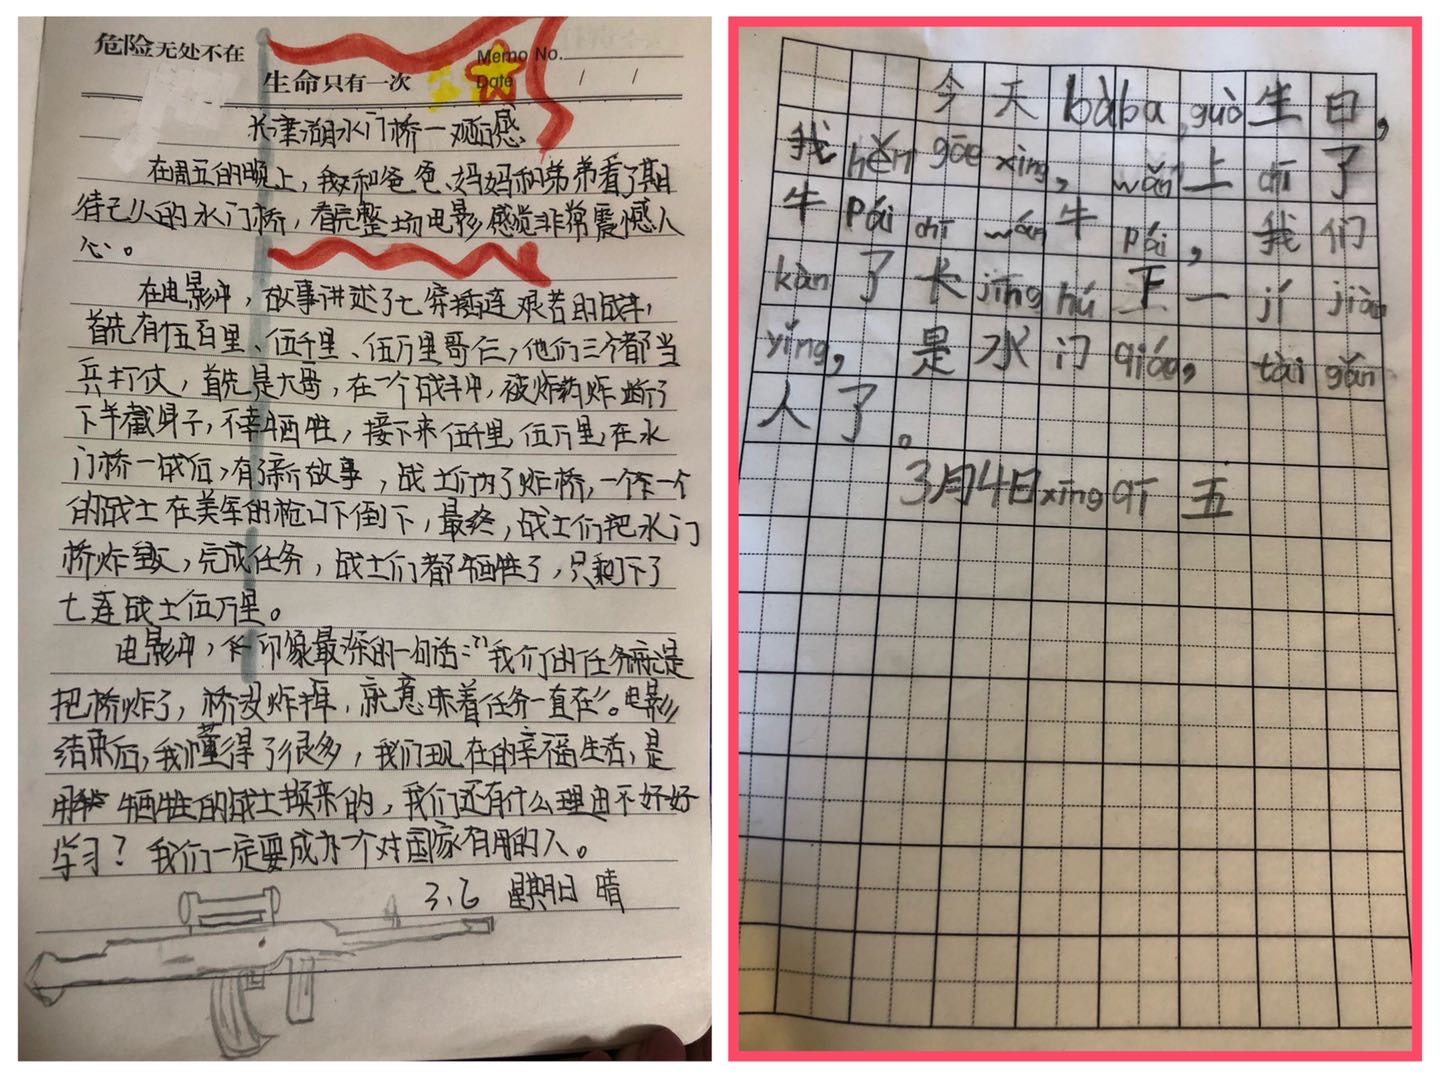 危险无处不在
Memo No.
生命只有一次
Date / /
长津湖水门桥一观后感
在周五的晚上，我和爸爸、妈妈和弟弟看了期
待已久的水门桥，看完整场电影感觉非常震憾人
心。
在电影中，故事讲述了七穿插连艰苦的战斗，
首先有伍百里、伍千里、伍万里哥仨，他们三个都当
兵打仗，首先是大哥，在一个战斗中，被炸药炸断了
下半截身子，不幸牺牲，接下来伍千里伍万里，在水
门桥一战后，有了新故事，战士们为了炸桥，一个一个
的战士在美军的枪口下倒下，最终，战士们把水门
桥炸毁，完成任务，战士们都牺牲了，只剩下了
七连战士伍万里。
电影中，印像最深的一句话：“我们的任务就是
把桥炸了，桥没炸掉，就意味着任务一直在”。电影
结束后，我懂得了很多，我们现在的幸福生活，是
用牺牲的战士换来的，我们还有什么理由不好好
学习？我们一定要成为个对国家有用的人。
3.6 星期日 晴
今天bàba guò生日，
我hěn gāo xìng，wǎn上chī了
牛pái chī wán牛pái，我们
kàn了长jīng hú下一jí jiàn
yǐng，是水门qiáo，tài gǎn
人了。
3月4日xīng qī 五